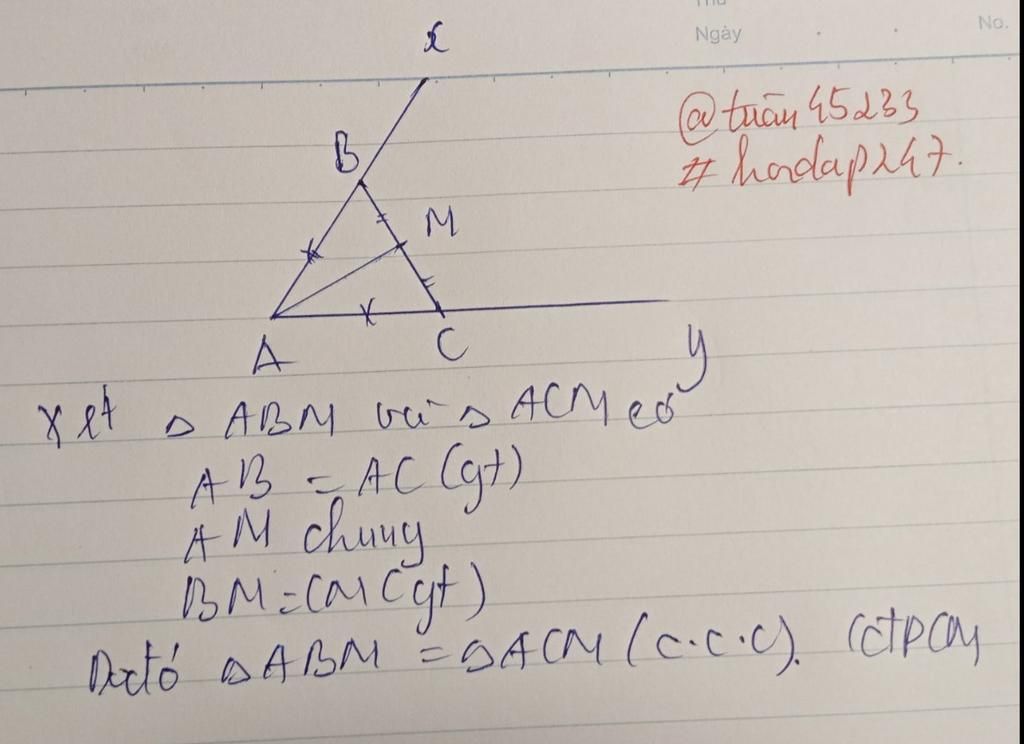 Thứ
Ngày
No.
x
@tuân45233
#hoidap247.
B
M
A
C
y
Xét △ ABM và △ ACM có
AB = AC (gt)
AM chung
BM = CM (gt)
Do đó △ ABM = △ ACM (c.c.c). (ĐPCM